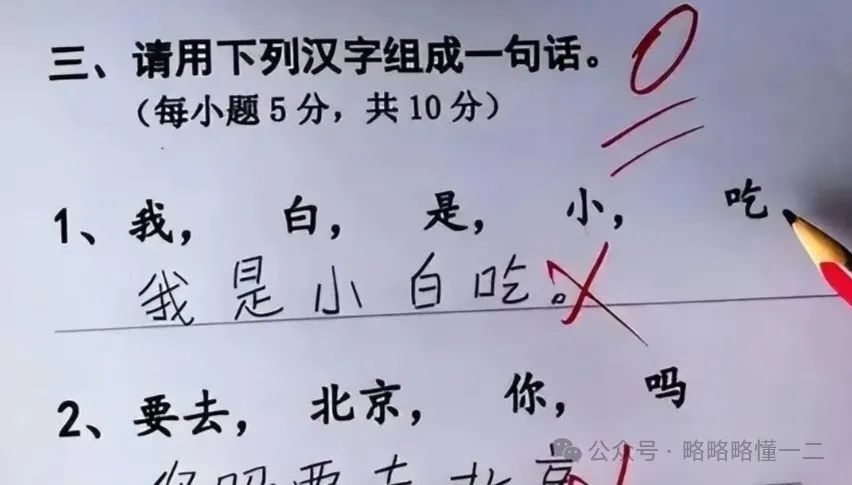 三、请用下列汉字组成一句话。
(每小题5分，共10分)
0
1、我， 白， 是， 小， 吃
我是小白吃。
2、要去， 北京， 你， 吗
你吗要去北京
公众号·略略略懂一二